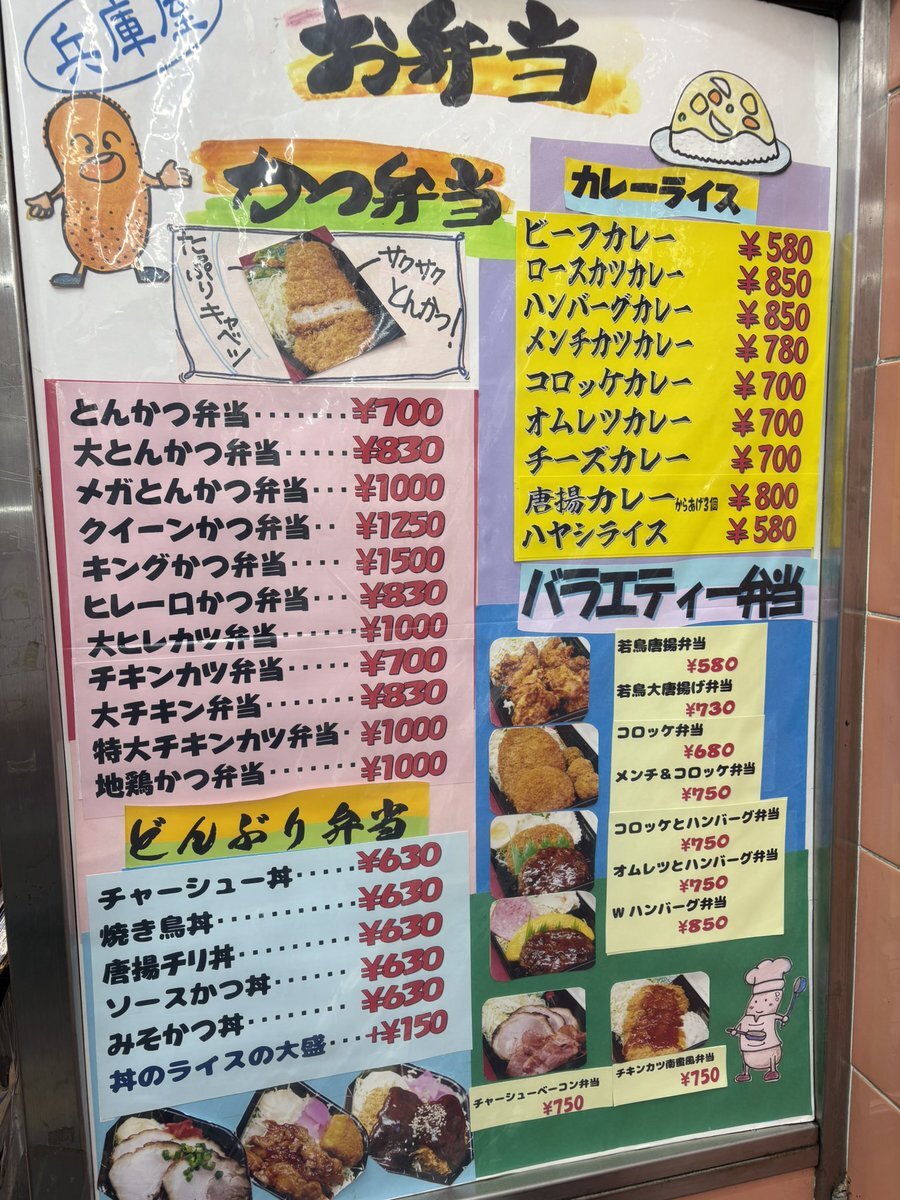 兵庫屋
お弁当
かつ弁当
たっぷりキャベツ
サクサク
とんかつ!
とんかつ弁当········¥700
大とんかつ弁当·····¥830
メガとんかつ弁当···¥1000
クイーンかつ弁当··¥1250
キングかつ弁当····¥1500
ヒレ一口かつ弁当···¥830
大ヒレカツ弁当·····¥1000
チキンカツ弁当·····¥700
大チキン弁当······¥830
特大チキンカツ弁当·¥1000
地鶏かつ弁当·······¥1000
どんぶり弁当
チャーシュー丼·····¥630
焼き鳥丼··········¥630
唐揚チリ丼········¥630
ソースかつ丼······¥630
みそかつ丼········¥630
丼のライスの大盛···+¥150
カレーライス
ビーフカレー ¥580
ロースカツカレー ¥850
ハンバーグカレー ¥850
メンチカツカレー ¥780
コロッケカレー ¥700
オムレツカレー ¥700
チーズカレー ¥700
唐揚カレーからあげ3個 ¥800
ハヤシライス ¥580
バラエティー弁当
若鳥唐揚弁当
¥580
若鳥大唐揚げ弁当
¥730
コロッケ弁当
¥680
メンチ&コロッケ弁当
¥750
コロッケとハンバーグ弁当
¥750
オムレツとハンバーグ弁当
¥750
Wハンバーグ弁当
¥850
チャーシューベーコン弁当
¥750
チキンカツ南蛮風弁当
¥750